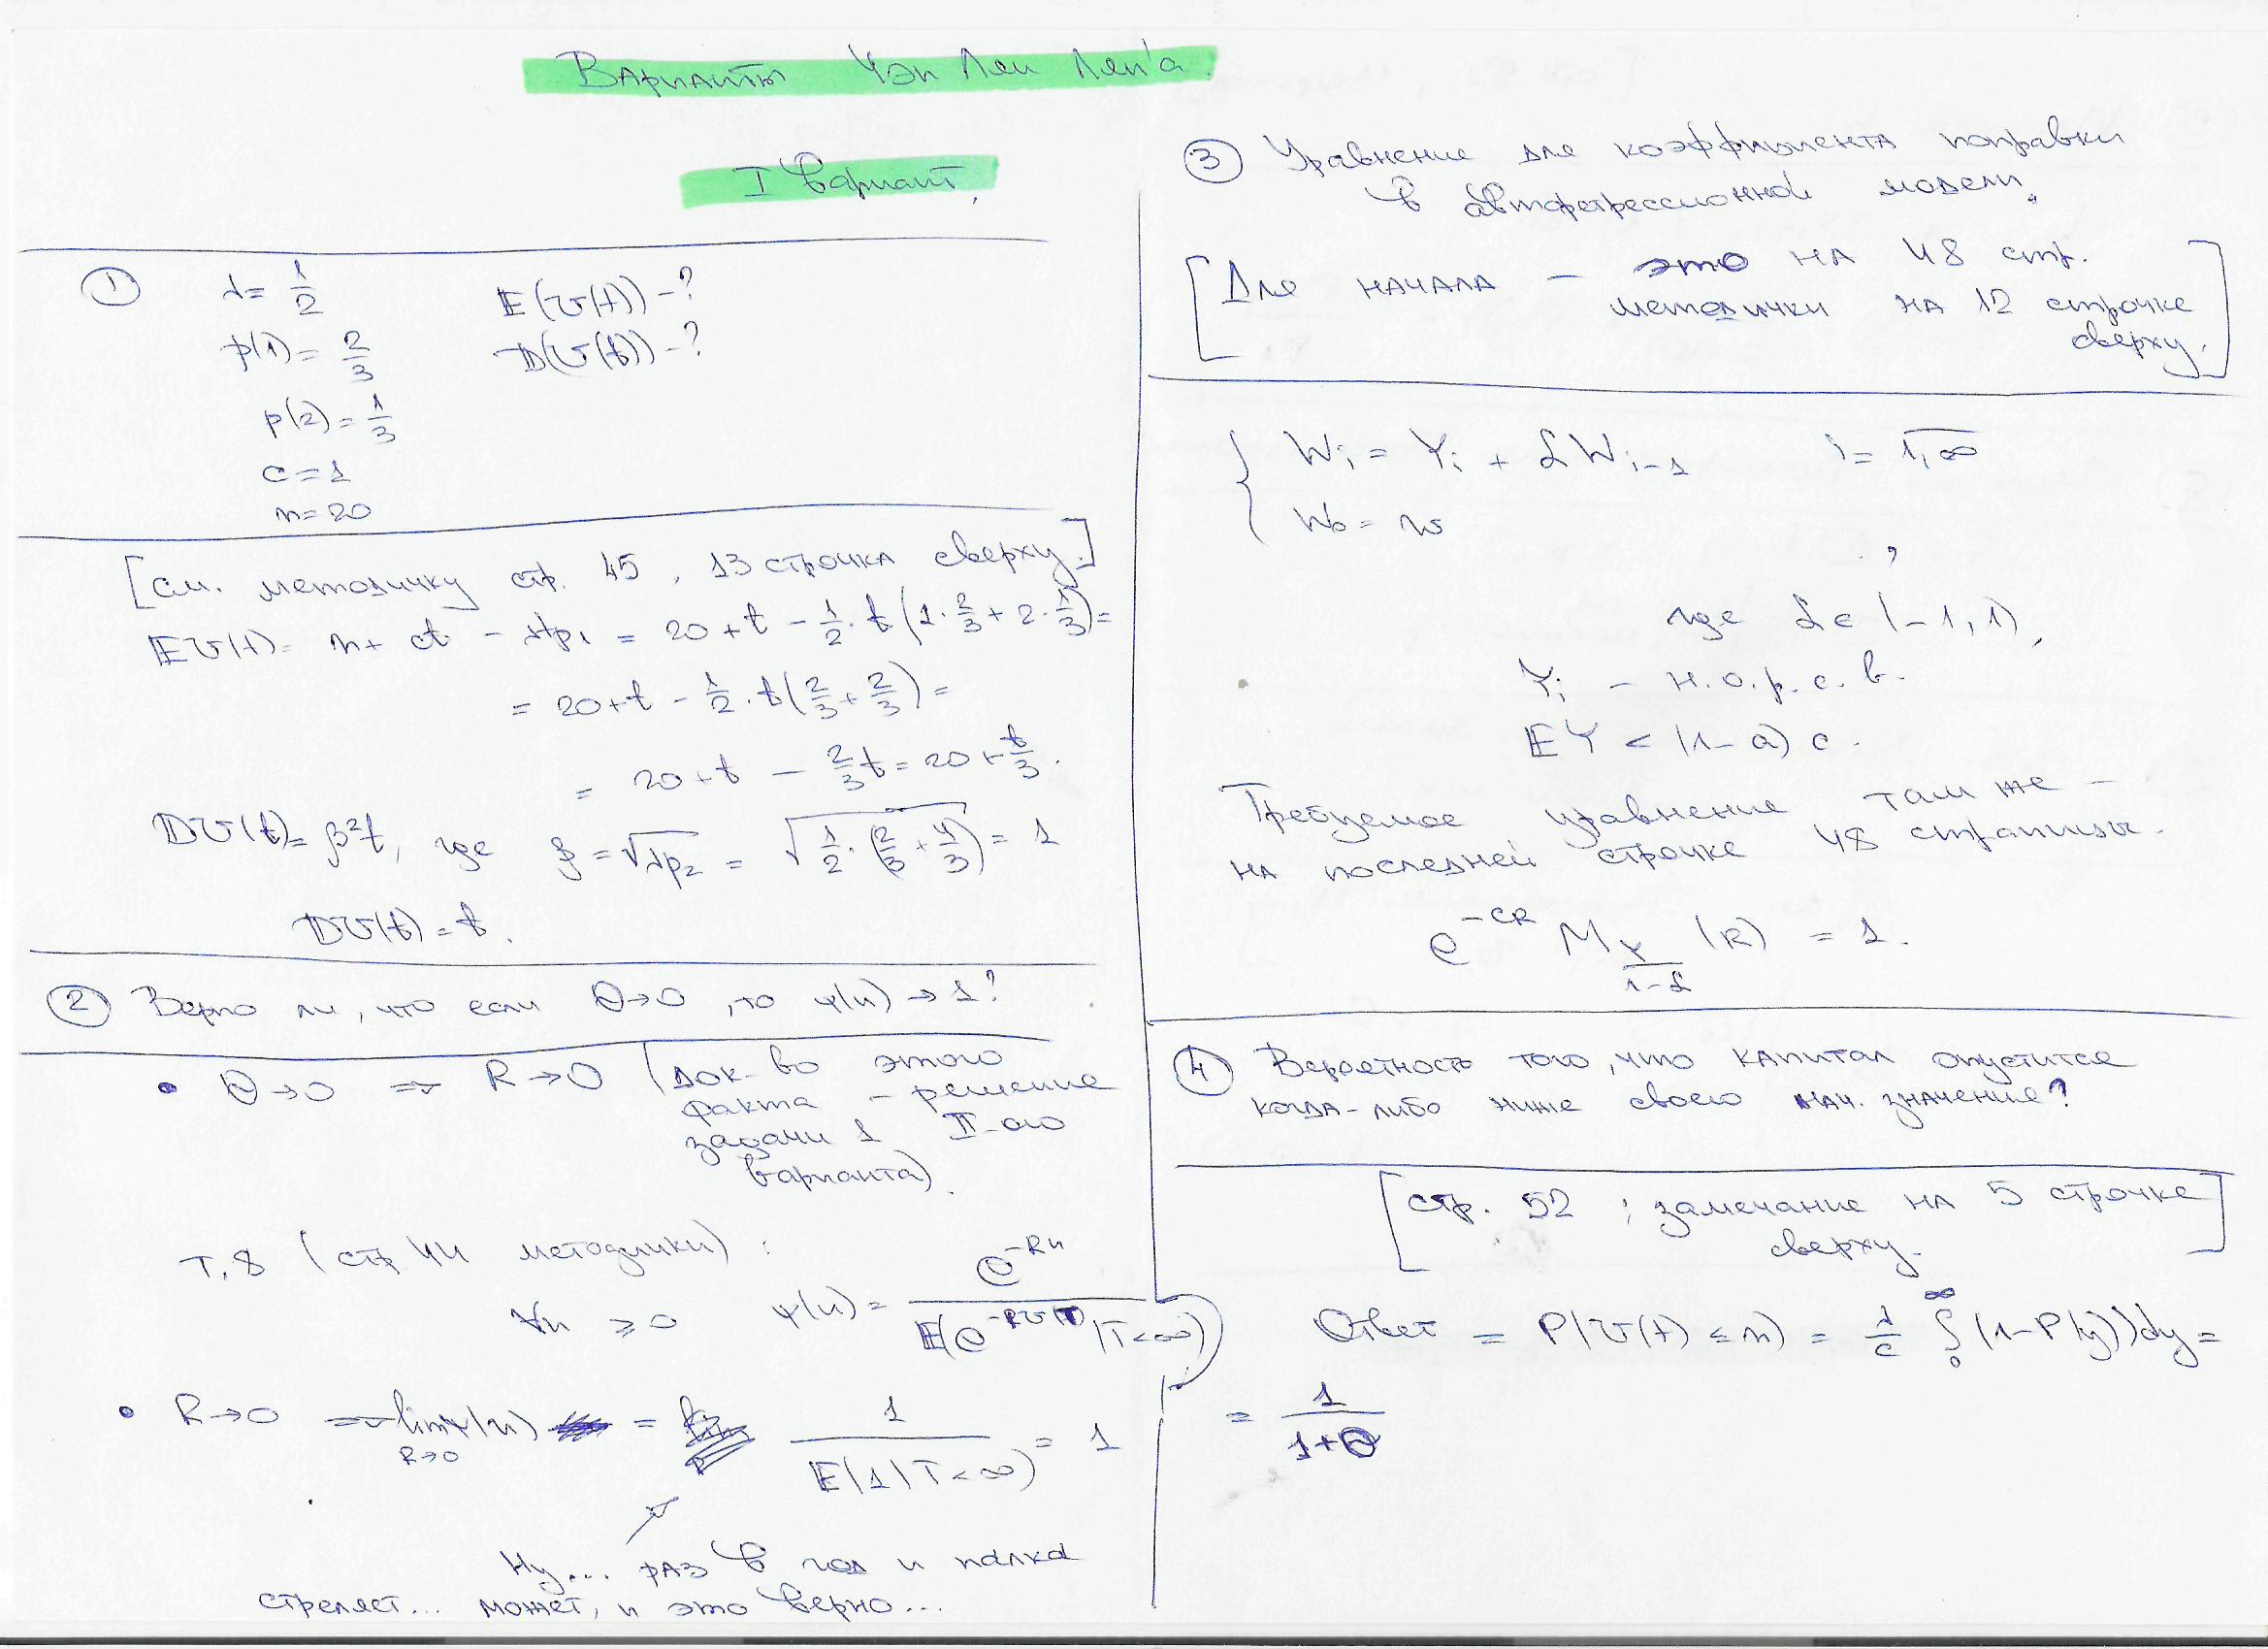 Варианты Чэн Лян Лян'а.
I вариант.
① λ = 1/2 E(U(t)) - ?
p(1) = 2/3 D(U(t)) - ?
p(2) = 1/3
c = 1
n = 20
[см. методичку стр. 45, 13 строчка сверху.]
EU(t) = n + ct - λtp₁ = 20 + t - 1/2 · t (1 · 2/3 + 2 · 1/3) =
= 20 + t - 1/2 · t (2/3 + 2/3) =
= 20 + t - 2/3 t = 20 + t/3.
DU(t) = β²t, где β = √λp₂ = √(1/2 · (2/3 + 4/3)) = 1
DU(t) = t.
② Верно ли, что если θ → 0, то ψ(u) → 1?
• θ → 0 ⇒ R → 0 (док-во этого
факта - решение
задачи 1 II-ого
варианта).
Т. 8 (стр 44 методички):
∀u ≥ 0 ψ(u) = e^{-Ru} / E(e^{-RU(T)} | T < ∞)
• R → 0 ⇒ lim ψ(u) = 1 / E(1 | T < ∞) = 1
R → 0
Ну... раз в год и палка
стреляет... может, и это верно...
③ Уравнение для коэффициента поправки
в авторегрессионной модели.
[Для начала - это на 48 стр.
методички на 12 строчке
сверху.]
{ Wᵢ = Yᵢ + αWᵢ₋₁ i = 1,∞
W₀ = w
где α ∈ (-1, 1),
Yᵢ - н.о.р.с.в.
EY < (1 - a) c.
Требуемое уравнение там же -
на последней строчке 48 страницы.
e^{-cR} M_{Y/(1-α)} (R) = 1.
④ Вероятность того, что капитал опустится
когда-либо ниже своего нач. значения?
[стр. 52; замечание на 5 строчке
сверху.]
Ответ = P(U(t) ≤ n) = λ/c ∫₀^∞ (1 - P(y)) dy =
= 1 / (1 + θ)